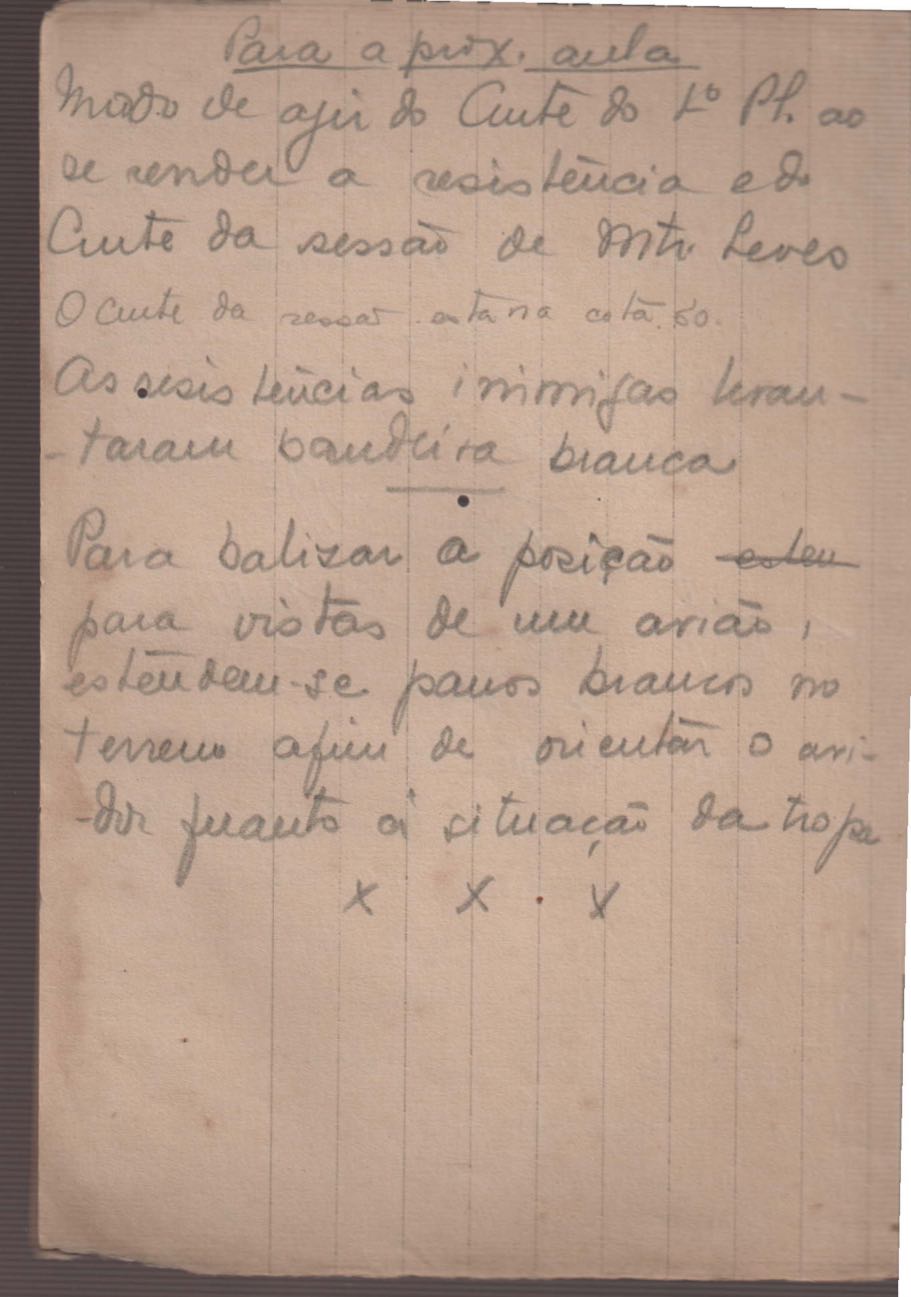 Para a prox. aula
Modo de agir do Cmte do 1º Pl. ao
se render a resistência e do
Cmte da sessão de Mtr. Leves
O Cmte da sessão está na cota 60.
As resistências inimigas levan-
-taram bandeira branca
Para balizar a posição esten
para vistas de um avião,
estendem-se panos brancos no
terreno afim de orientar o avi-
-dor quanto à situação da tropa
x x . x